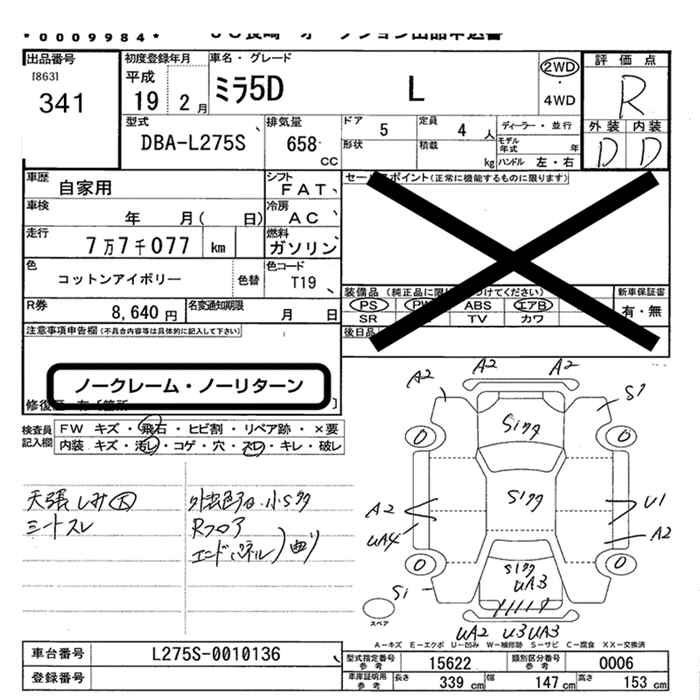 *0009984*
出品番号
[863]
341
初度登録年月
平成
19 2 月
車名・グレード
ミラ5D L
2WD
・
4WD
評価点
R
外装 内装
D D
型式
DBA-L275S
排気量
658
CC
ドア 5
定員 4 人
ディーラー・並行
モデル年式 年
形状
積載 kg
ハンドル 左・右
車歴 自家用
シフト FAT
セールスポイント(正常に機能するものに限ります)
車検 年 月( 日)
冷房 AC
走行 7万7千077 km
燃料 ガソリン
色 コットンアイボリー 色替
色コード T19
R券 8,640円
名変通知期限 月 日
装備品
PS PW ABS エアB
SR TV カワ
新車保証書
有・無
後日品
注意事項申告欄(不具合内容等は具体的に記入して下さい)
ノークレーム・ノーリターン
検査員記入欄
FW キズ・飛石・ヒビ割・リペア跡・×要
内装 キズ・汚レ・コゲ・穴・スレ・キレ・破レ
天張しみ大
シートスレ
小Sサク
Rフロア
エンドパネル)曲り
A2 A2 A2 S1
Sサク
A2 U1
UA4 A2
S1
Sサク
UA3
UA2 U3 UA3
スペア
A-キズ E-エクボ U-凹み W-補修跡 S-サビ C-腐食 XX-交換済
車台番号 L275S-0010136
登録番号
型式指定番号 参考 15622
類別区分番号 参考 0006
車庫証明用 参考 長さ 339 cm 幅 147 cm 高さ 153 cm